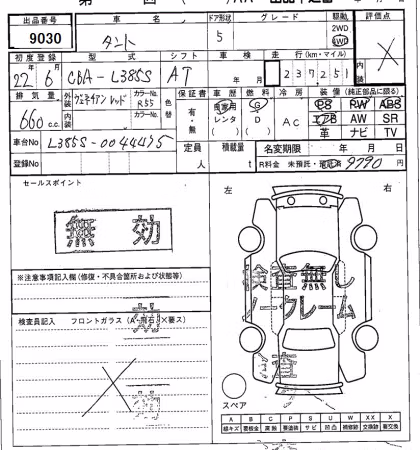 出品番号 車名 ドア形状 グレード 駆動 評価点
9030 タント 5 2WD 4WD ×
初度登録 型式 シフト 車検 走行(km・マイル) 内装
22年6月 CBA-L385S AT 年 月 237,251
排気量 外装 カラーNo. 色替 保証書 車歴 燃料 冷房 装備(純正部品に限る)
660c.c. R55 有・無 自家用 G AC PS PW ABS
内装 カラーNo. レンタ D エアB AW SR
( ) ( ) 革 ナビ TV
車台No L385S-0044475 定員 積載量 名変期限 年 月 日
登録No 人 t R料金 未預託・預託済 9790円
セールスポイント 左 右
無効
※注意事項記入欄(修復・不具合箇所および状態等)
検査無し
ノークレーム
検査員記入 フロントガラス(A・飛石・×要ス)
スペア
A B C P S U W X XX
線キズ 要板金 腐蝕 要塗装 サビ 凹凸 補修跡 要交換